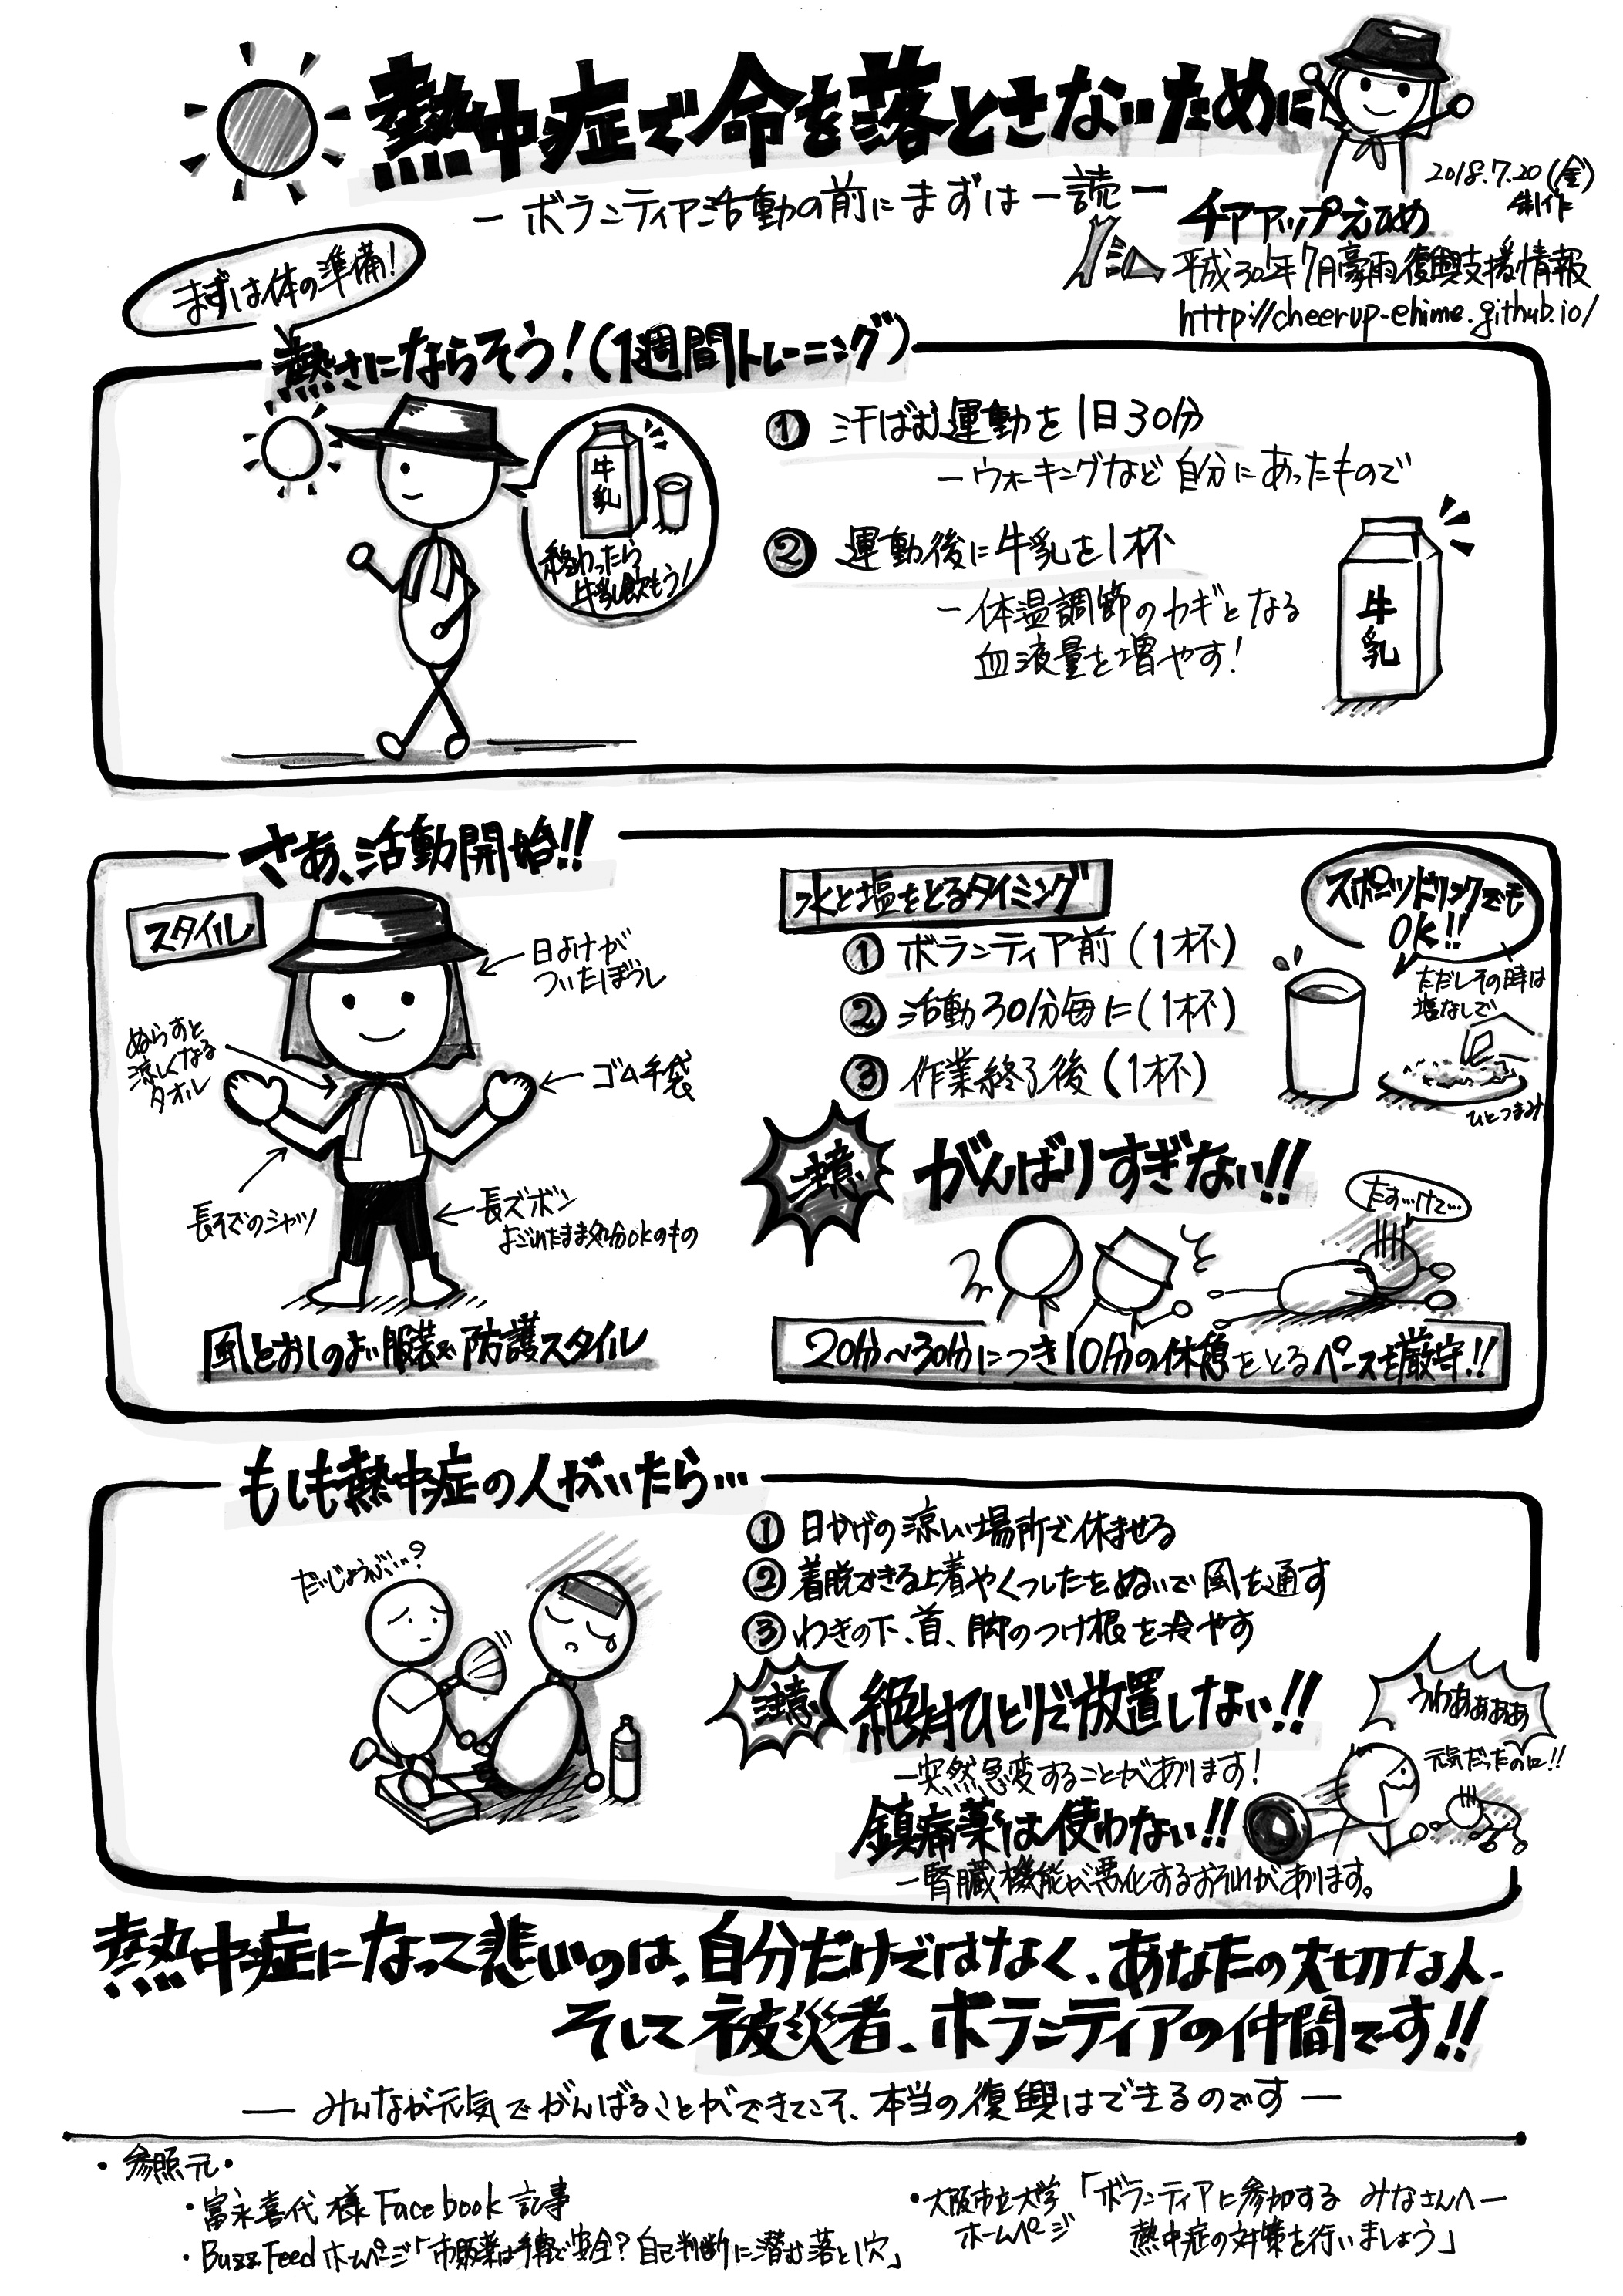 熱中症で命を落とさないために
ーボランティア活動の前にまずは一読ー
2018.7.20(金)
制作
チアアップえひめ
平成30年7月豪雨復興支援情報
http://cheerup-ehime.github.io/
まずは体の準備!
熱さにならそう!(1週間トレーニング)
牛乳
終わったら
牛乳飲もう!
① 汗ばむ運動を1日30分
ーウォーキングなど自分にあったもので
② 運動後に牛乳を1杯
ー体温調節のカギとなる
血液量を増やす!
牛乳
さあ、活動開始!!
スタイル
日よけが
ついたぼうし
ぬらすと
涼しくなる
タオル
ゴム手袋
長そでのシャツ
長ズボン
よごれたまま処分OKのもの
風とおしのよい服装で防護スタイル
水と塩をとるタイミング
① ボランティア前(1杯)
② 活動30分毎に(1杯)
③ 作業終了後(1杯)
スポーツドリンクでも
OK!!
ただしその時は
塩なしで
ひとつまみ
注意
がんばりすぎない!!
たす…けて…
20分〜30分につき10分の休憩をとるペースを厳守!!
もしも熱中症の人がいたら…
だいじょうぶ…?
① 日かげの涼しい場所で休ませる
② 着脱できる上着やくつしたをぬいで風を通す
③ わきの下、首、脚のつけ根を冷やす
注意
絶対ひとりで放置しない!!
ー突然急変することがあります!
うわぁぁぁぁぁ
元気だったのに!!
鎮痛薬は使わない!!
ー腎臓機能が悪化するおそれがあります。
熱中症になって悲しいのは、自分だけではなく、あなたの大切な人、
そして被災者、ボランティアの仲間です!!
ーみんなが元気でがんばることができてこそ、本当の復興はできるのですー
・参照元・
・富永喜代様 Facebook 記事
・BuzzFeed ホームページ「市販薬は手軽で安全?自己判断に潜む落とし穴」
・大阪市立大学「ボランティアに参加する みなさんへー
ホームページ 熱中症の対策を行いましょう」